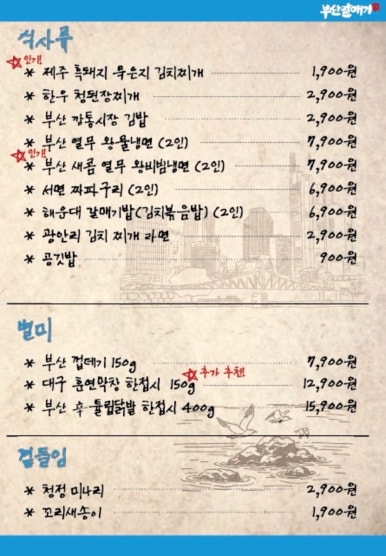 부산갈매기
식사류
인기!
* 제주 흑돼지 묵은지 김치찌개 1,900원
* 한우 청된장찌개 2,900원
* 부산 깡통시장 김밥 2,900원
* 부산 열무 왕물냉면 (2인) 7,900원
인기!
* 부산 새콤 열무 왕비빔냉면 (2인) 7,900원
* 서면 짜파구리 (2인) 6,900원
* 해운대 갈매기밥(김치볶음밥) (2인) 6,900원
* 광안리 김치 찌개 라면 2,900원
* 공깃밥 900원
별미
* 부산 껍데기 150g 7,900원
추가 추천!
* 대구 훈연막창 한접시 150g 12,900원
* 부산 후 튤립닭발 한접시 400g 15,900원
곁들임
* 청정 미나리 2,900원
* 꼬리새송이 1,900원